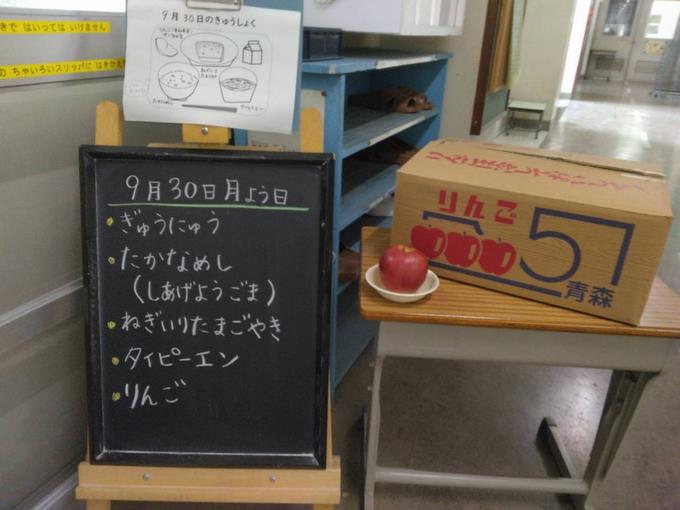 きで はいっては いけません
の ちゃいろいスリッパに はきかえ
9月30日のきゅうしょく
9月30日月よう日
・ぎゅうにゅう
・たかなめし
(しあげようごま)
・ねぎいりたまごやき
・タイピーエン
・りんご
りんご
青森